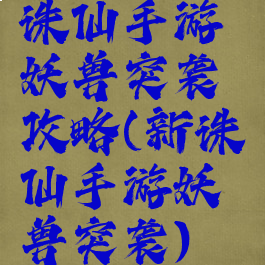 诛仙手游
妖兽突袭
攻略(新诛
仙手游妖
兽突袭)